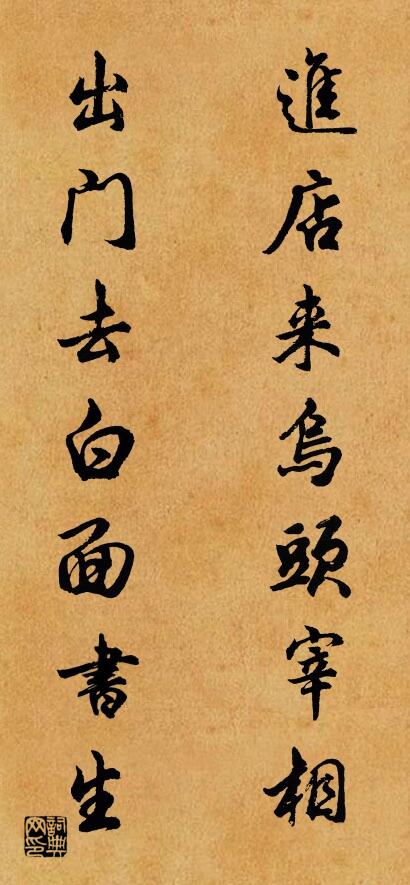 進店来烏頭宰相
出门去白面書生
詞典网印